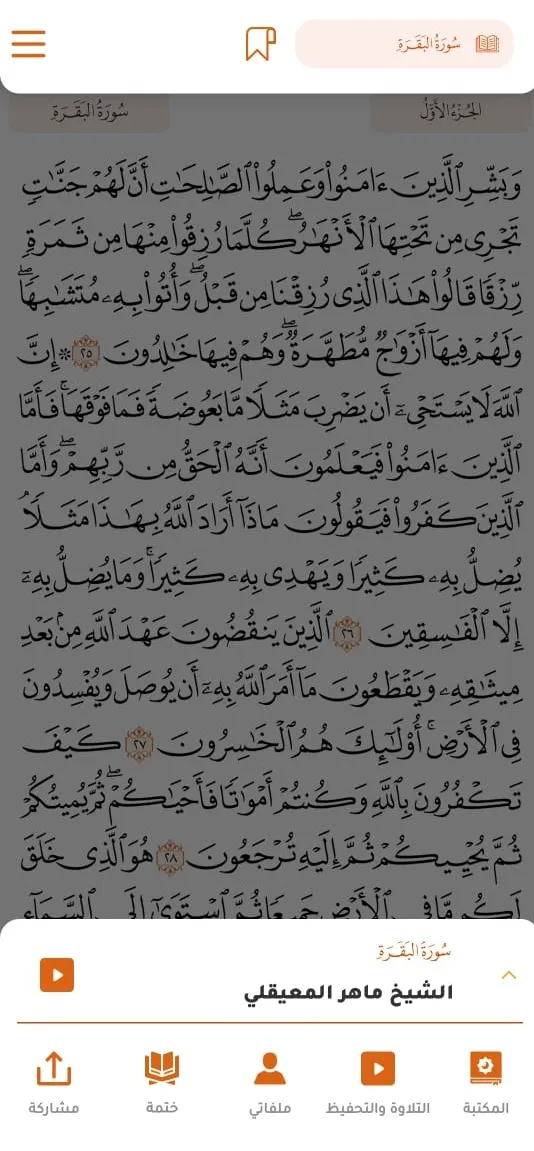 سُورَةُ البَقَرَةِ
الجُزْءُ الأَوَّلُ
سُورَةُ البَقَرَةِ
وَبَشِّرِ ٱلَّذِينَ ءَامَنُوا۟ وَعَمِلُوا۟ ٱلصَّـٰلِحَـٰتِ أَنَّ لَهُمْ جَنَّـٰتٍ
تَجْرِى مِن تَحْتِهَا ٱلْأَنْهَـٰرُ ۖ كُلَّمَا رُزِقُوا۟ مِنْهَا مِن ثَمَرَةٍ
رِّزْقًا قَالُوا۟ هَـٰذَا ٱلَّذِى رُزِقْنَا مِن قَبْلُ ۖ وَأُتُوا۟ بِهِۦ مُتَشَـٰبِهًا ۖ
وَلَهُمْ فِيهَآ أَزْوَٰجٌ مُّطَهَّرَةٌ ۖ وَهُمْ فِيهَا خَـٰلِدُونَ ٢٥ ۞ إِنَّ
ٱللَّهَ لَا يَسْتَحْىِۦٓ أَن يَضْرِبَ مَثَلًا مَّا بَعُوضَةً فَمَا فَوْقَهَا ۚ فَأَمَّا
ٱلَّذِينَ ءَامَنُوا۟ فَيَعْلَمُونَ أَنَّهُ ٱلْحَقُّ مِن رَّبِّهِمْ ۖ وَأَمَّا
ٱلَّذِينَ كَفَرُوا۟ فَيَقُولُونَ مَاذَآ أَرَادَ ٱللَّهُ بِهَـٰذَا مَثَلًا ۘ
يُضِلُّ بِهِۦ كَثِيرًا وَيَهْدِى بِهِۦ كَثِيرًا ۚ وَمَا يُضِلُّ بِهِۦٓ
إِلَّا ٱلْفَـٰسِقِينَ ٢٦ ٱلَّذِينَ يَنقُضُونَ عَهْدَ ٱللَّهِ مِنۢ بَعْدِ
مِيثَـٰقِهِۦ وَيَقْطَعُونَ مَآ أَمَرَ ٱللَّهُ بِهِۦٓ أَن يُوصَلَ وَيُفْسِدُونَ
فِى ٱلْأَرْضِ ۚ أُو۟لَـٰٓئِكَ هُمُ ٱلْخَـٰسِرُونَ ٢٧ كَيْفَ
تَكْفُرُونَ بِٱللَّهِ وَكُنتُمْ أَمْوَٰتًا فَأَحْيَـٰكُمْ ۖ ثُمَّ يُمِيتُكُمْ
ثُمَّ يُحْيِيكُمْ ثُمَّ إِلَيْهِ تُرْجَعُونَ ٢٨ هُوَ ٱلَّذِى خَلَقَ
لَكُم مَّا فِى ٱلْأَرْضِ جَمِيعًا ثُمَّ ٱسْتَوَىٰٓ إِلَى ٱلسَّمَآءِ
سُورَةُ البَقَرَةِ
الشيخ ماهر المعيقلي
المكتبة
التلاوة والتحفيظ
ملفاتي
ختمة
مشاركة